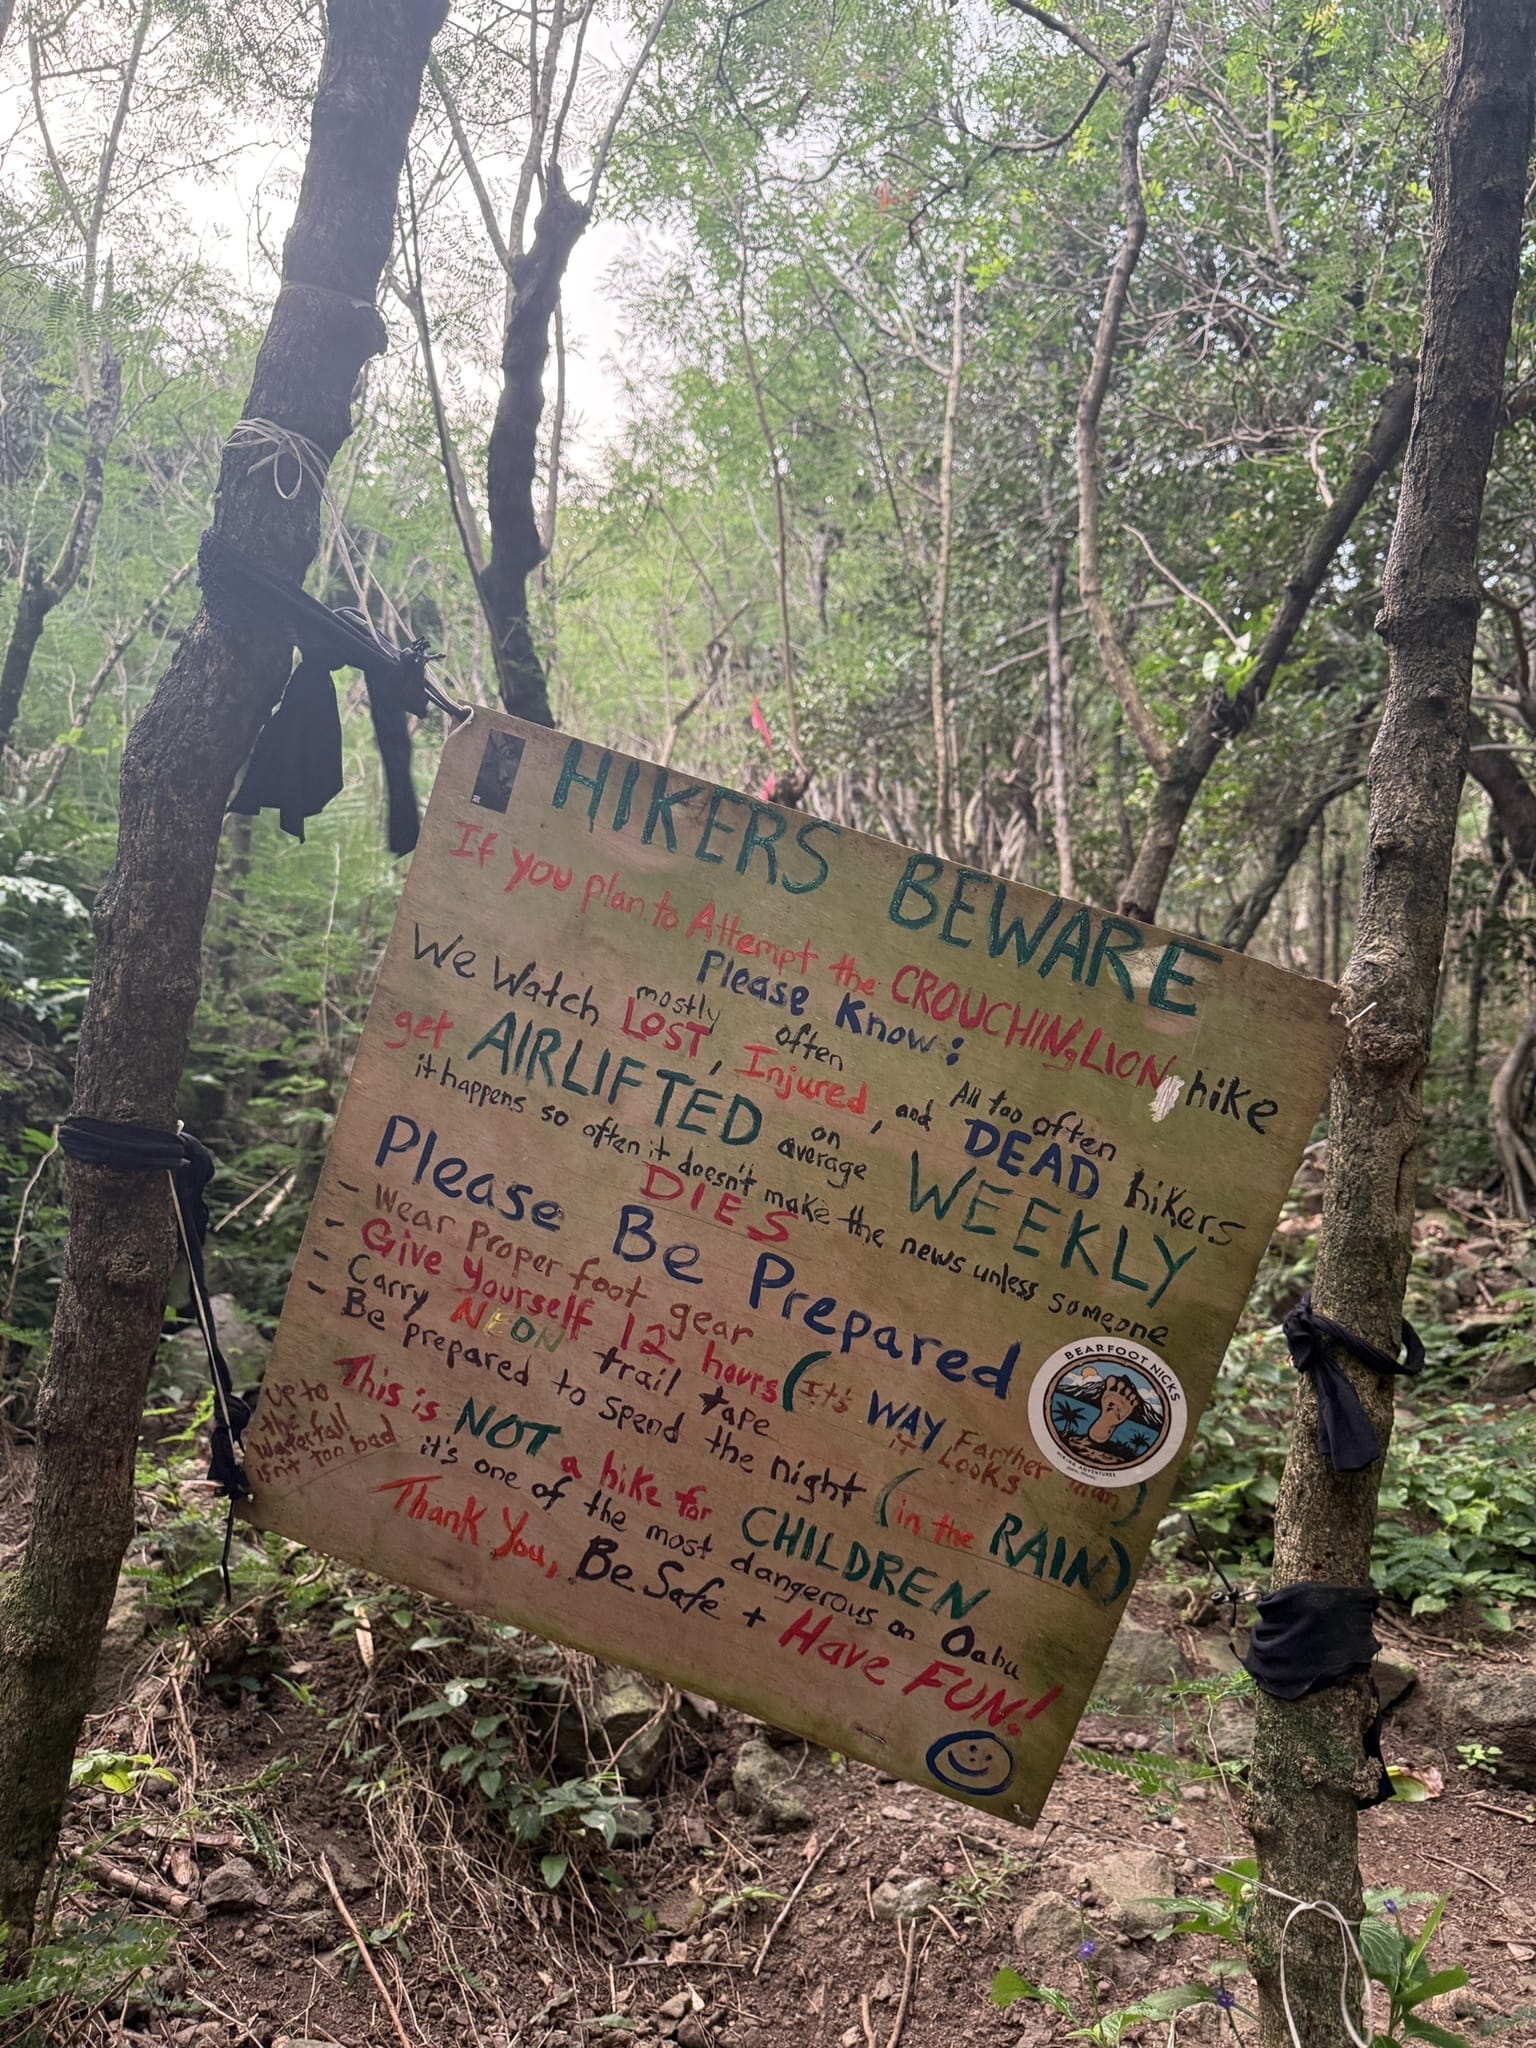 HIKERS BEWARE
If you plan to Attempt the CROUCHING LION hike
Please Know:
We Watch mostly LOST, often Injured, and All too often DEAD hikers
get AIRLIFTED on average WEEKLY
it happens so often it doesn't make the news unless someone
DIES
Please Be Prepared
- Wear Proper foot gear
- Give Yourself 12 hours (It's WAY Farther than it Looks)
- Carry NEON trail tape
- Be prepared to spend the night (in the RAIN)
This is NOT a hike for CHILDREN
it's one of the most dangerous on Oahu
Thank You, Be Safe + Have FUN!
Up to
the
Waterfall
isn't too bad
BEARFOOT NICKS
HIKING ADVENTURES